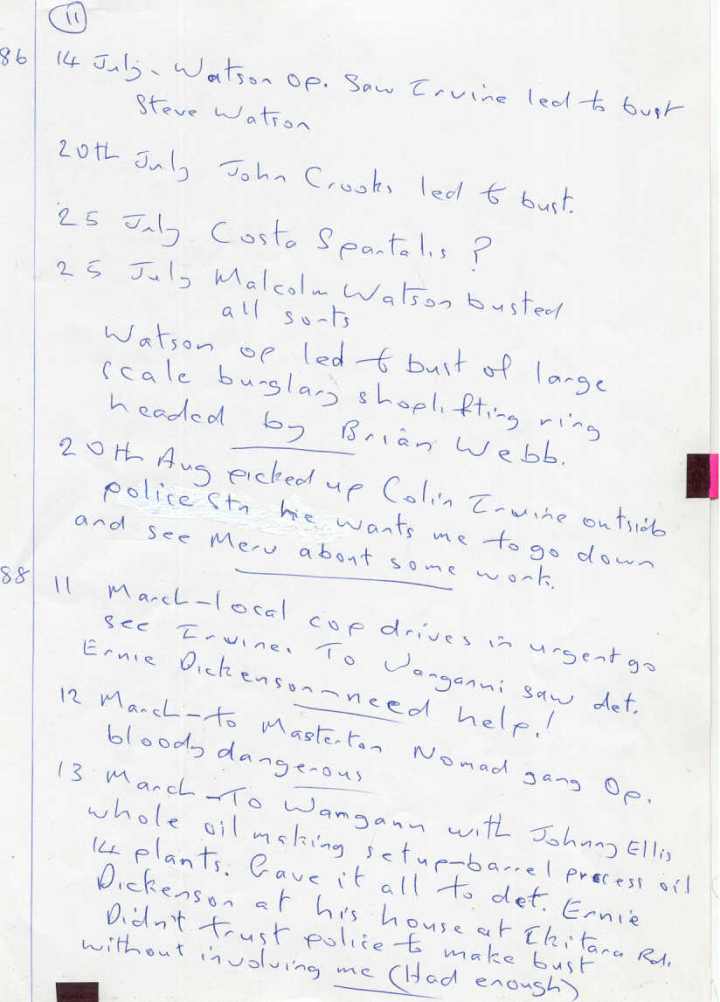 11
86 14 July - Watson Op. Saw Irvine led to bust
Steve Watson
20th July John Crooks led to bust.
25 July Costa Spantalis ?
25 July Malcolm Watson busted
all sorts
Watson op led to bust of large
scale burglary shoplifting ring
headed by Brian Webb.
20th Aug picked up Colin Irwine outside
police Stn he wants me to go down
and see Merv about some work.
88 11 March - local cop drives in urgent go
see Irwine. To Wanganui saw det.
Ernie Dickenson - need help!
12 March - to Masterton Nomad gang Op.
bloody dangerous
13 March - To Wangann with Johnny Ellis
whole oil making setup - barrel process oil
14 plants. Gave it all to det. Ernie
Dickenson at his house at Ikitara Rd.
Didn't trust police to make bust
without involving me (Had enough)